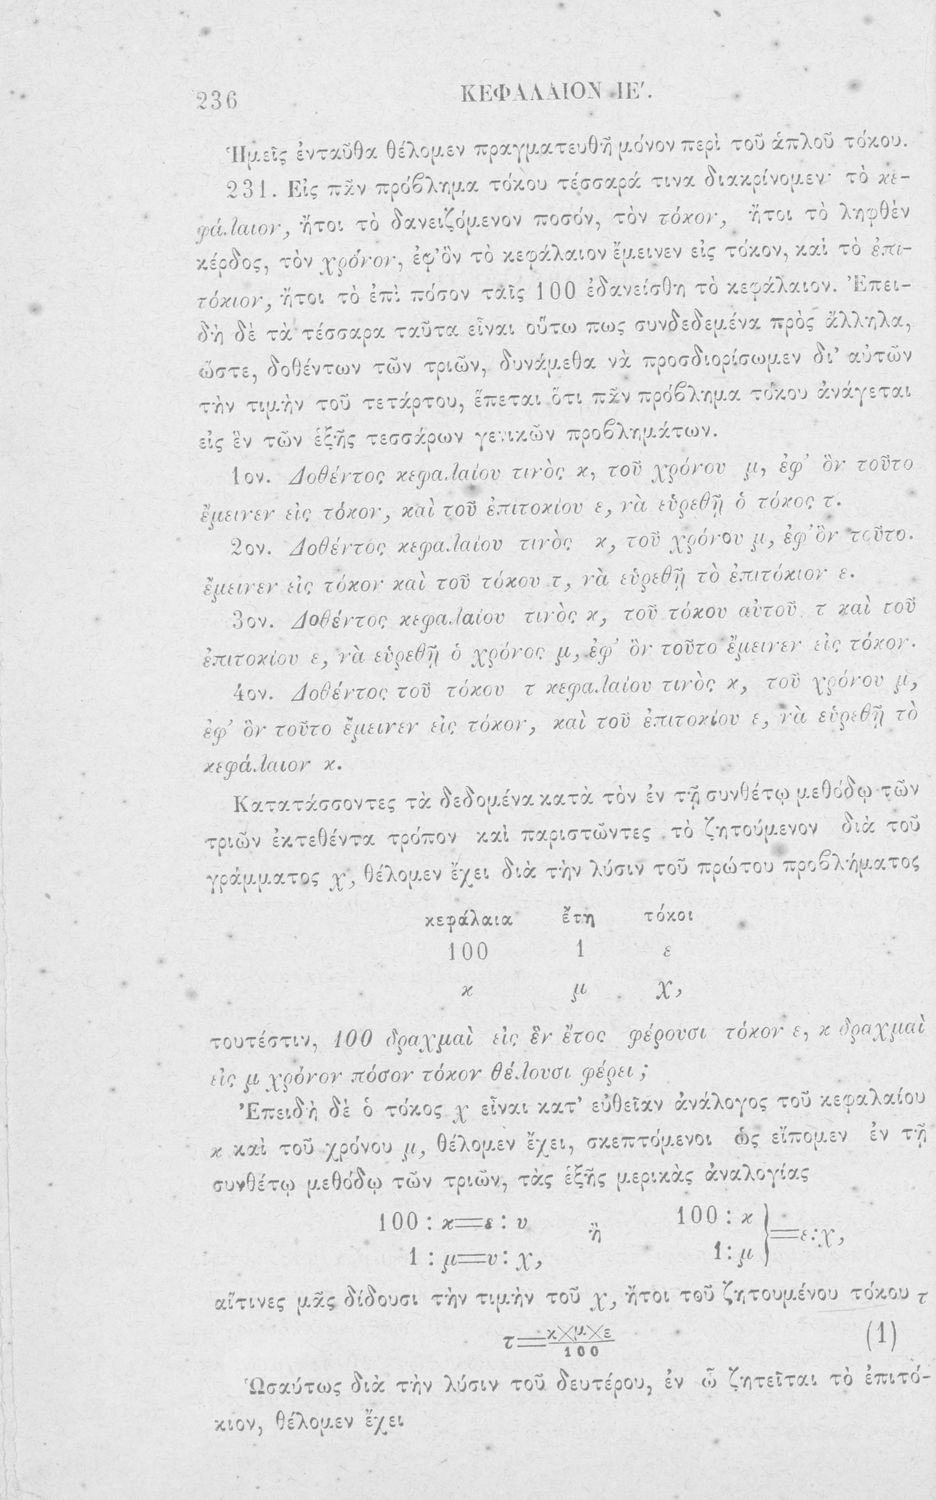 236
ΚΕΦΑΛΑΙΟΝ ΙΕ'.
Ἡμεῖς ἐνταῦθα θέλομεν πραγματευθῆ μόνον περὶ τοῦ ἁπλοῦ τόκου.
231. Εἰς πᾶν πρόβλημα τόκου τέσσαρά τινα διακρίνομεν· τὸ κε-
φάλαιον, ἤτοι τὸ δανειζόμενον ποσόν, τὸν τόκον, ἤτοι τὸ ληφθὲν
κέρδος, τὸν χρόνον, ἐφ' ὃν τὸ κεφάλαιον ἔμεινεν εἰς τόκον, καὶ τὸ ἐπι-
τόκιον, ἤτοι τὸ ἐπὶ πόσον ταῖς 100 ἐδανείσθη τὸ κεφάλαιον. Ἐπει-
δὴ δὲ τὰ τέσσαρα ταῦτα εἶναι οὕτω πως συνδεδεμένα πρὸς ἄλληλα,
ὥστε, δοθέντων τῶν τριῶν, δυνάμεθα νὰ προσδιορίσωμεν δι' αὐτῶν
τὴν τιμὴν τοῦ τετάρτου, ἕπεται ὅτι πᾶν πρόβλημα τόκου ἀνάγεται
εἰς ἓν τῶν ἑξῆς τεσσάρων γενικῶν προβλημάτων.
1ον. Δοθέντος κεφαλαίου τινὸς κ, τοῦ χρόνου μ, ἐφ' ὃν τοῦτο
ἔμεινεν εἰς τόκον, καὶ τοῦ ἐπιτοκίου ε, νὰ εὑρεθῇ ὁ τόκος τ.
2ον. Δοθέντος κεφαλαίου τινὸς κ, τοῦ χρόνου μ, ἐφ' ὃν τοῦτο
ἔμεινεν εἰς τόκον καὶ τοῦ τόκου τ, νὰ εὑρεθῇ τὸ ἐπιτόκιον ε.
3ον. Δοθέντος κεφαλαίου τινὸς κ, τοῦ τόκου αὐτοῦ τ καὶ τοῦ
ἐπιτοκίου ε, νὰ εὑρεθῇ ὁ χρόνος μ, ἐφ' ὃν τοῦτο ἔμεινεν εἰς τόκον.
4ον. Δοθέντος τοῦ τόκου τ κεφαλαίου τινὸς κ, τοῦ χρόνου μ,
ἐφ' ὃν τοῦτο ἔμεινεν εἰς τόκον, καὶ τοῦ ἐπιτοκίου ε, νὰ εὑρεθῇ τὸ
κεφάλαιον κ.
Κατατάσσοντες τὰ δεδομένα κατὰ τὸν ἐν τῇ συνθέτῳ μεθόδῳ τῶν
τριῶν ἐκτεθέντα τρόπον καὶ παριστῶντες τὸ ζητούμενον διὰ τοῦ
γράμματος χ, θέλομεν ἔχει διὰ τὴν λύσιν τοῦ πρώτου προβλήματος
κεφάλαια ἔτη τόκοι
100 1 ε
κ μ χ,
τουτέστιν, 100 δραχμαὶ εἰς ἓν ἔτος φέρουσι τόκον ε, κ δραχμαὶ
εἰς μ χρόνον πόσον τόκον θέλουσι φέρει ;
Ἐπειδὴ δὲ ὁ τόκος χ εἶναι κατ' εὐθεῖαν ἀνάλογος τοῦ κεφαλαίου
κ καὶ τοῦ χρόνου μ, θέλομεν ἔχει, σκεπτόμενοι ὡς εἴπομεν ἐν τῇ
συνθέτῳ μεθόδῳ τῶν τριῶν, τὰς ἑξῆς μερικὰς ἀναλογίας
100 : κ=ε : υ ἢ 100 : κ } =ε:χ,
1 : μ=υ: χ, 1: μ
αἵτινες μᾶς δίδουσι τὴν τιμὴν τοῦ χ, ἤτοι τοῦ ζητουμένου τόκου τ
τ=κ×μ×ε/100 (1)
Ὡσαύτως διὰ τὴν λύσιν τοῦ δευτέρου, ἐν ᾧ ζητεῖται τὸ ἐπιτό-
κιον, θέλομεν ἔχει